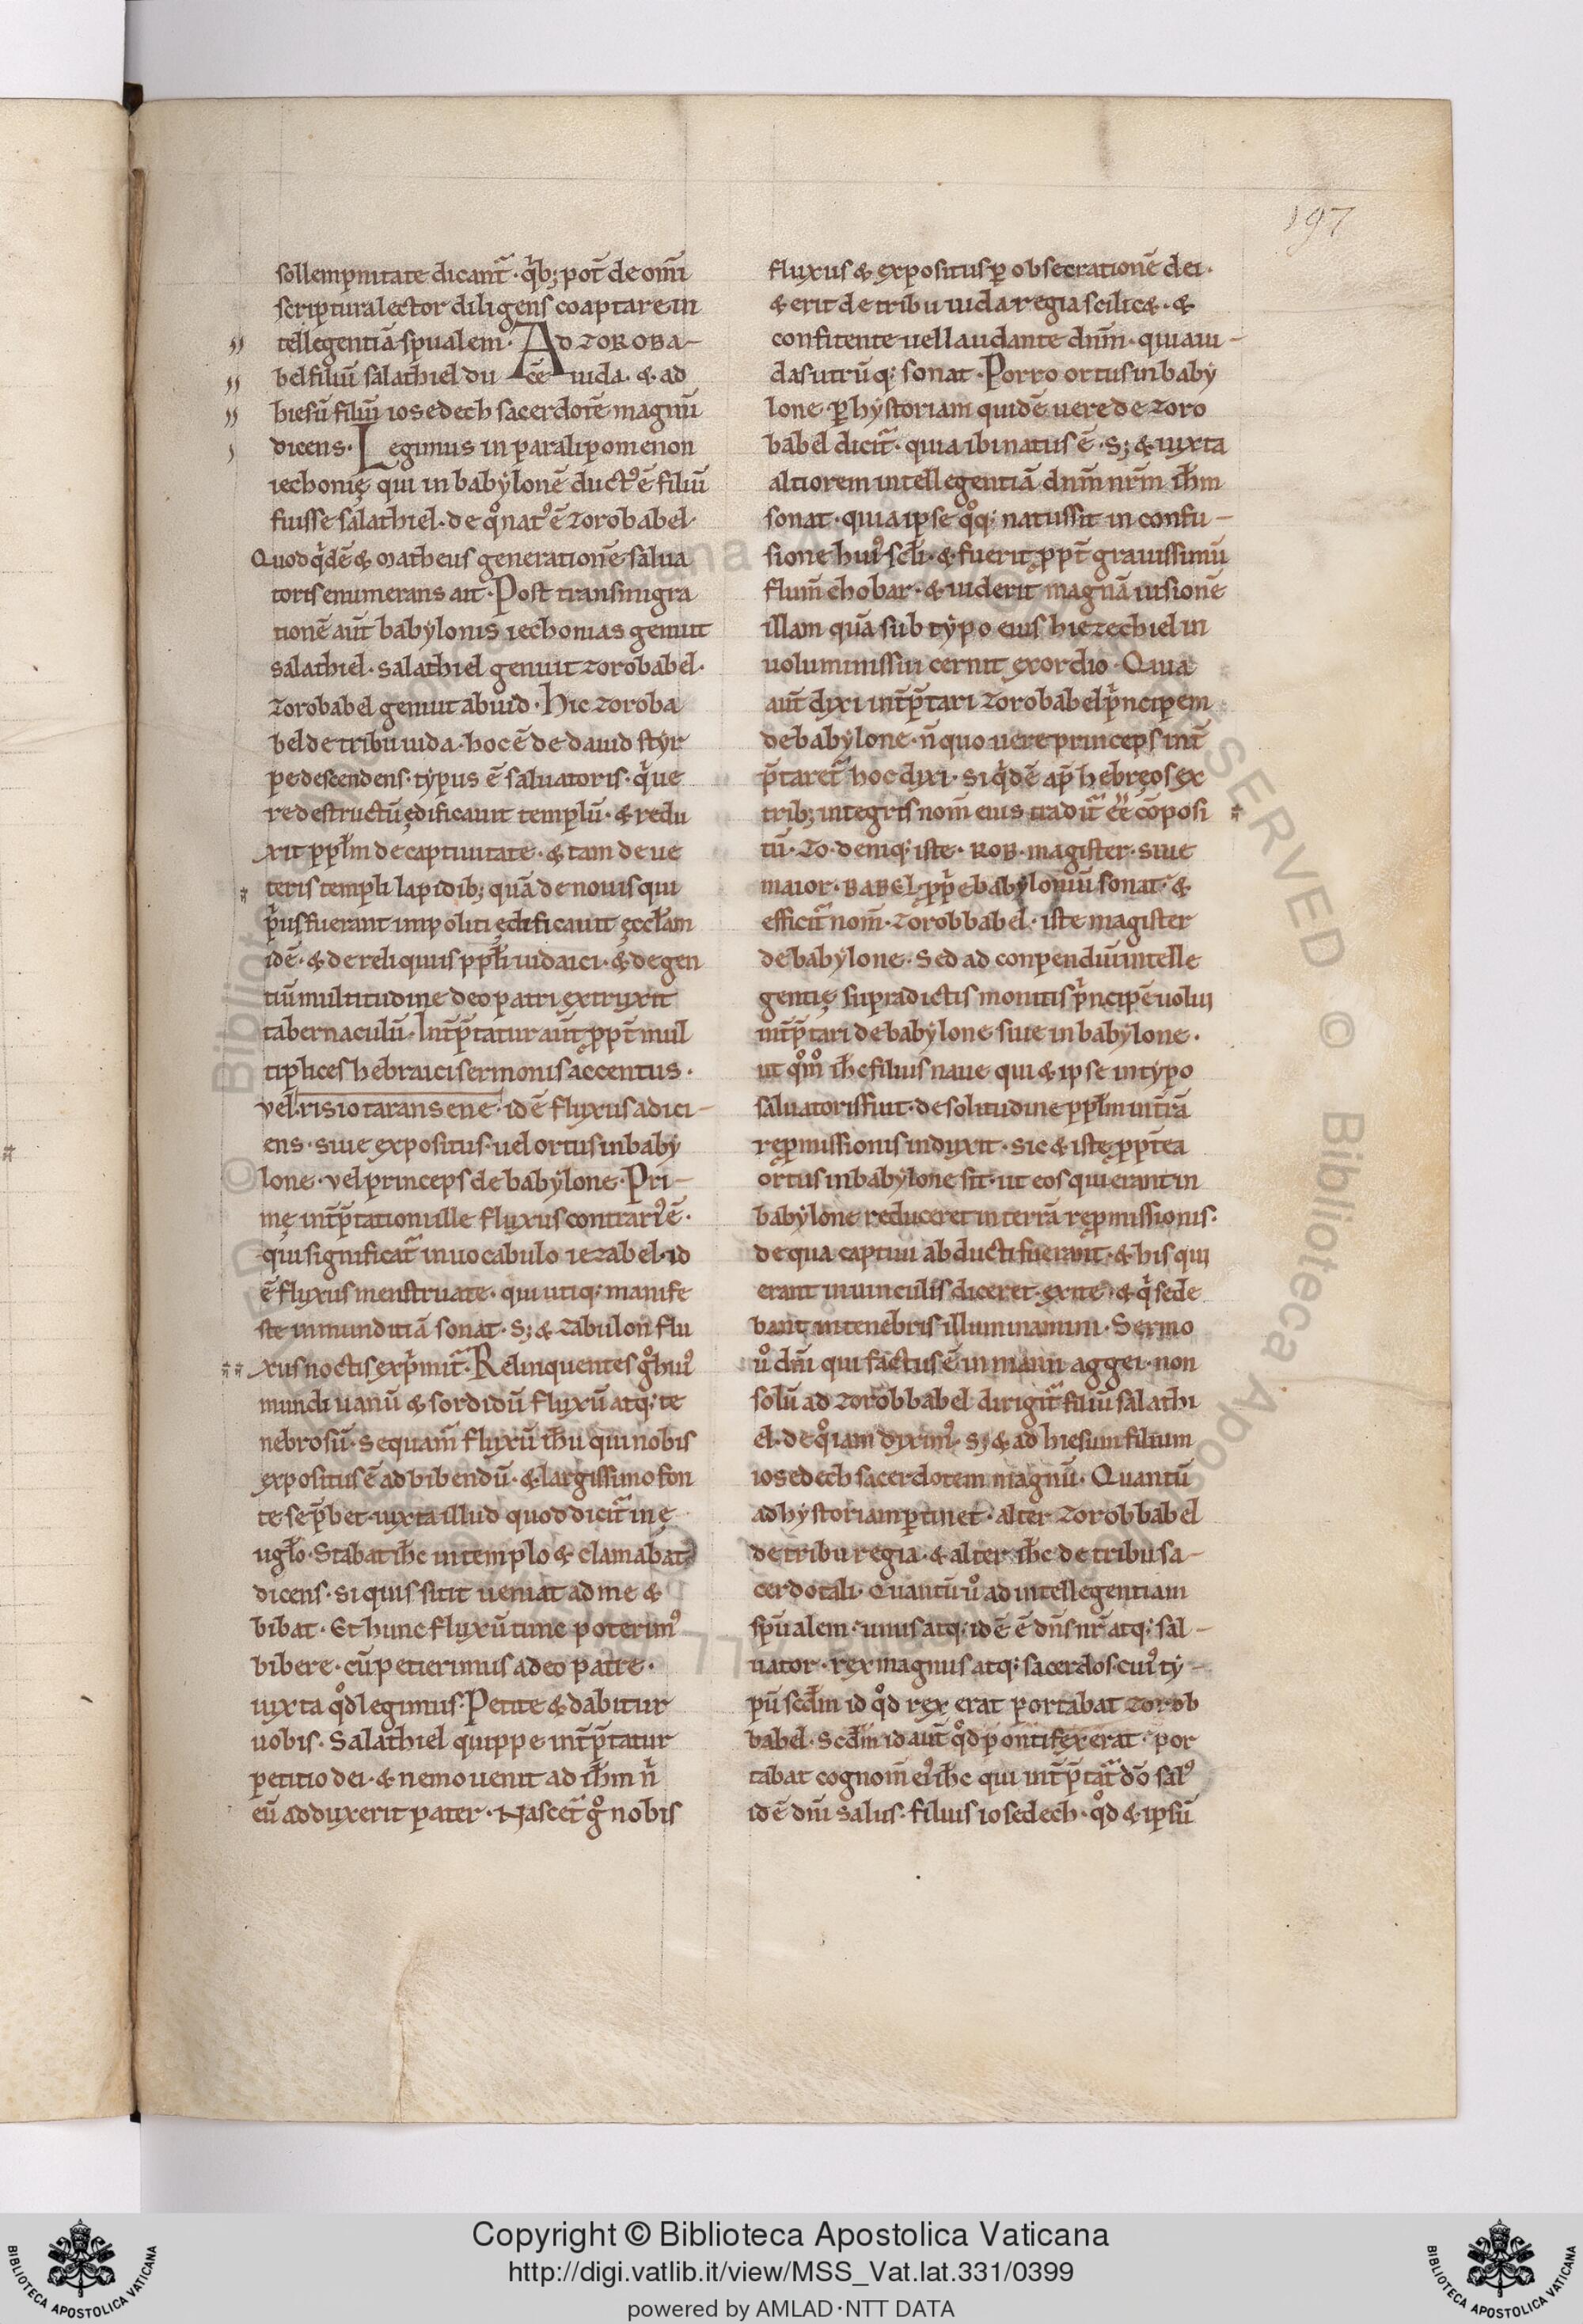 197
sollempnitate dicant᷑· q̓b; pot̄ de om̄i
scriptura lector diligens coaptare in
tellegentiā spualem· AD ZOROBA-
bel filiū salathiel du cē iuda· & ad
hiesū filiū iosedech sacerdotē magnū
dicens· Legimus in paralipomenon
iechonię qui in babylonē duct᷒ ē filiū
fuisse salathiel· de q̊ nat᷒ ē zorobabel·
Quod q̓dē & matheus generationē salua
toris enumerans ait· Post transmigra
tionē aut̄ babylonis iechonias genuit
salathiel· salathiel genuit zorobabel·
Zorobabel genuit abiud· Hic zoroba
bel de tribu iuda· hoc ē de dauid styr
pe descendens· typus ē saluatoris· q̓ ue
re destructū ędificauit templū· & redu
xit pp̄lm de captiuitate· & tam de ue
teris templi lapidib; quā de nouis qui
p̓us fuerant impoliti ędificauit ęccl̄am
idē· & de reliquiis pp̄li iudaici· & de gen
tiū multitudine deo patri extruxit
tabernaculū· Int̄p̄tatur aut̄ ꝓpt̄ mul
tiplices hebraici sermonis accentus·
vel· risio tarans ene· id ē fluxus adici-
ens· siue expositus· uel ortus in baby
lone· vel princeps de babylone· Pri-
mę int̄p̄tationi ille fluxus contrari᷒ ē·
qui significat᷑ in uocabulo iezabel· id
ē fluxus menstruate· qui utiq; manife
ste inmunditiā sonat· S; & zabulon flu
xus noctis exp̓mit᷑· Relinquentes g̊ hui᷒
mundi uanū & sordidū fluxū atq; te
nebrosū· sequam᷑ fluxū ih̄u qui nobis
expositus ē ad bibendū· & largissimo fon
te se p̄bet· iuxta illud quod dicit᷑ in ę
ugl̄o· Stabat ih̄c in templo & clamabat
dicens· si quis sitit ueniat ad me &
bibat· Et hunc fluxū tunc poterim᷒
bibere· cū petierimus a deo patre·
iuxta q̊d legimus· Petite & dabitur
uobis· Salathiel quippe int̄p̄tatur
petitio dei· & nemo uenit ad ih̄m n̓
eū adduxerit pater· Nascet᷑ g̊ nobis
fluxus & expositus ꝑ obsecrationē dei·
& erit de tribu iuda regia scilic&· &
confitente uel laudante dn̄m· quia iu-
das utrūq; sonat· Porro ortus in baby
lone· ꝑ hystoriam quidē uere de zoro
babel dicit᷑· quia ibi natus ē· S; & iuxta
altiorem intellegentiā dn̄m nr̄m ih̄m
sonat· quia ipse q̊q; natus sit in confu-
sione hui᷒ scl̄i· & fuerit ꝓpt̄ grauissimū
flum̄ chobar· & uiderit magnā uisionē
illam quā sub typo eius hiezechiel in
uoluminis sui cernit exordio· Quia
aut̄ dixi int̄p̄tari zorobabel p̓ncipem
de babylone· n̄ quo uere princeps int̄
p̄taret᷑ hoc dixi· siq̓dē ap̄ hebręos ex
trib; integris nom̄ eius tradit᷑ ēē cōposi
tū· ZO· deniq; iste· ROB· magister· siue
maior· BABEL· ꝓp̓e babyloniū sonat· &
efficit᷑ nom̄· zorobbabel· iste magister
de babylone· Sed ad conpendiū intelle
gentię supradictis monitis p̓ncipē uolui
int̄p̄tari de babylone siue in babylone·
ut q̊m̊ ih̄c filius naue qui & ipse in typo
saluatoris fuit· de solitudine pp̄lm in t̄rā
reꝓmissionis induxit· sic & iste ꝓpt̄ea
ortus in babylone sit· ut eos qui erant in
babylone reduceret in terrā reꝓmissionis·
de qua captiui abducti fuerant· & his qui
erant in uinculis diceret· exite· & q̓ sede
bant in tenebris illuminamini· Sermo
ů dn̄i qui factus ē in manu aggei· non
solū ad zorobbabel dirigit᷑ filiū salathi
el· de q̊ iam dixim᷒· s; & ad hiesum filium
iosedech sacerdotem magnū· Quantū
ad hystoriam ꝑtinet· alter zorobbabel
de tribu regia· & alter ih̄c de tribu sa-
cerdotali· Quantū ů ad intellegentiam
spūalem· unus atq; idē ē dn̄s nr̄ atq; sal-
uator· rex magnus atq; sacerdos· cui᷒ ty-
pū scd̄m id q̊d rex erat portabat zorob
babel· Scd̄m id aut̄ q̊d pontifex erat· por
tabat cognom̄ ei᷒ ih̄c qui int̄p̄tat᷑ dō sal᷒
id ē dn̄i salus· filius iosedech· q̊d & ipsū
Copyright © Biblioteca Apostolica Vaticana
http://digi.vatlib.it/view/MSS_Vat.lat.331/0399
powered by AMLAD·NTT DATA
BIBLIOTECA APOSTOLICA VATICANA
BIBLIOTECA APOSTOLICA VATICANA